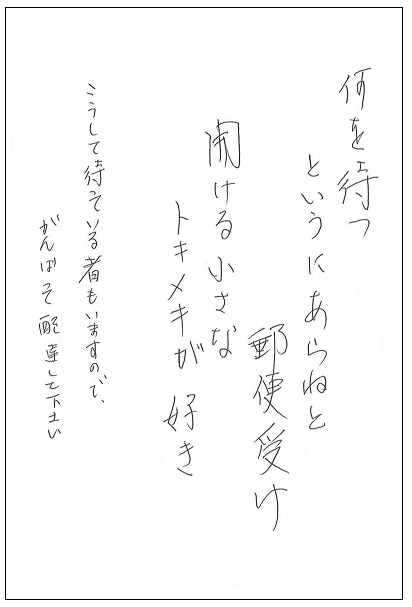 何を待つ
というにあらねと
郵便受け
開ける小さな
トキメキが 好き
こうして待っている者もいますので、
がんばって配達して下さい